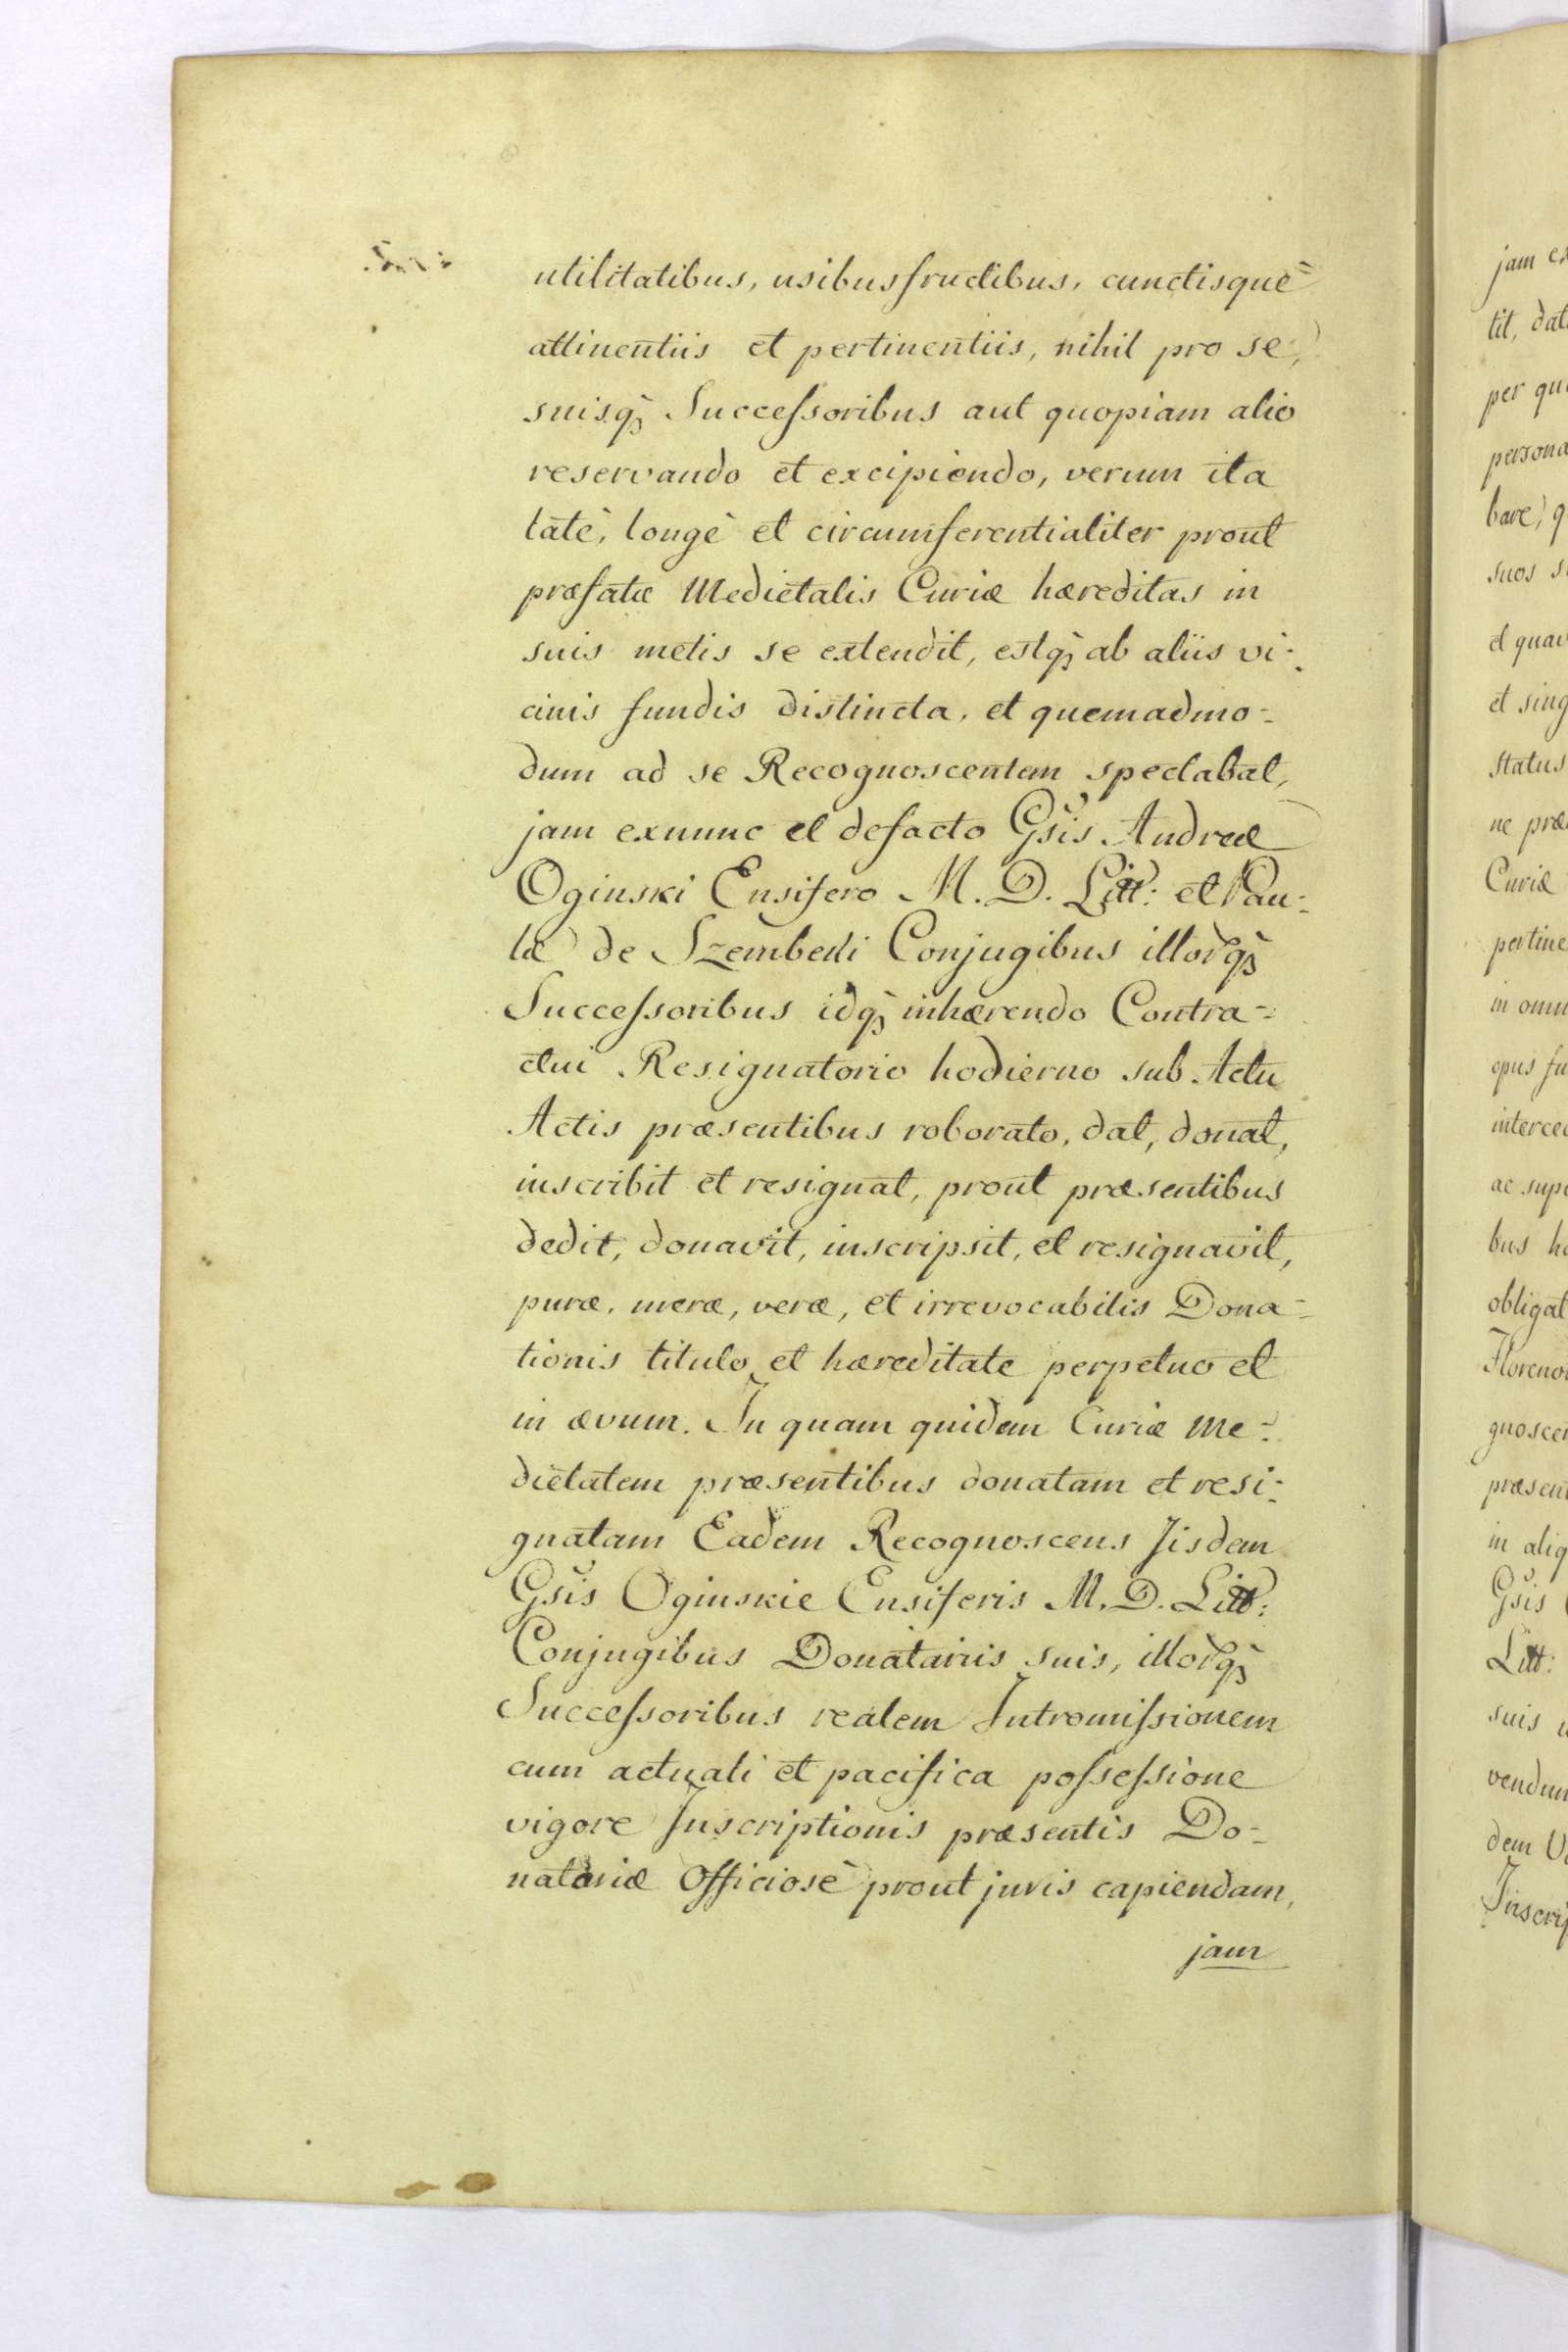 utilitatibus, usibusfructibus, cunctisquè
attinentiis et pertinentiis, nihil pro se,
suisq̃ Successoribus aut quopiam alio
reservando et excipiendo, verum ita
latè, longè et circumferentialiter prout
præfatæ Medietatis Curiæ hæreditas in
suis metis se extendit, estq̃ ab aliis vi-
cinis fundis distincta, et quemadmo-
dum ad se Recognoscentem spectabat,
jam exnunc et defacto Gsis Andreæ
Oginski Ensifero M. D. Litt: et Pau-
læ de Szembeki Conjugibus illorq̃
Successoribus idq̃ inhærendo Contra-
ctui Resignatorio hodierno sub Actu
Actis præsentibus roborato, dat, donat,
inscribit et resignat, prout præsentibus
dedit, donavit, inscripsit, et resignavit,
puræ, meræ, veræ, et irrevocabilis Dona-
tionis titulo et hæreditate perpetuo et
in ævum. In quam quidem Curiæ Me-
dietatem præsentibus donatam et resi-
gnatam Eadem Recognoscens Jisdem
Gsis Oginskie Ensiferis M. D. Litt:
Conjugibus Donatariis suis, illorq̃
Successoribus realem Intromissionem
cum actuali et pacifica possessione
vigore Inscriptionis præsentis Do-
natoriæ Officiosè prout juris capiendam,
jam
jam
tit, dat
per
persona
bare, q
suos
et
et sing
status
ne præ
Curiæ
pertine
in omn
opus fu
interce
ac sup
bus
obligat
Floreno
gnoscen
præsen
in aliq
Gsis
Litt:
suis
vendum
dem
Inscrip